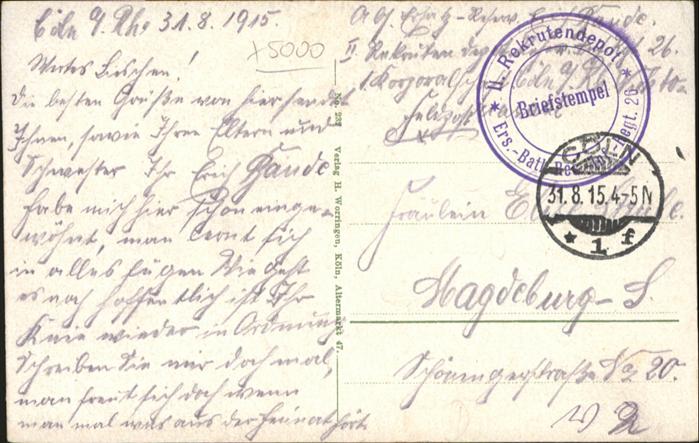 Cöln a/Rh. 31.8.1915.
x5000
Wertes Lieschen!
die besten Grüße von hier sendet
Ihnen, sowie Ihren Eltern und
Schwester Ihr Erich Gaude
habe mich hier schon einge-
wöhnt, man lernt sich
in alles fügen Wie geht
es noch hoffentlich ist Ihr
Knie wieder in Ordnung
Schreiben Sie mir doch mal,
man freut sich doch wenn
man mal was aus der Heimat hört
No. 232 Verlag H. Worringen, Köln, Altermarkt 47.
Abs. Ersatz-Reserv. Erich Gaude.
II. Rekruten depot 26.
1. Korporalsch. Cöln a/Rh.
Feldpost
* II. Rekrutendepot *
Briefstempel
Ers.-Batl. Regt. 26
CÖLN
31.8.15.4-5N
* 1 f
Fräulein
Magdeburg-S.
20.